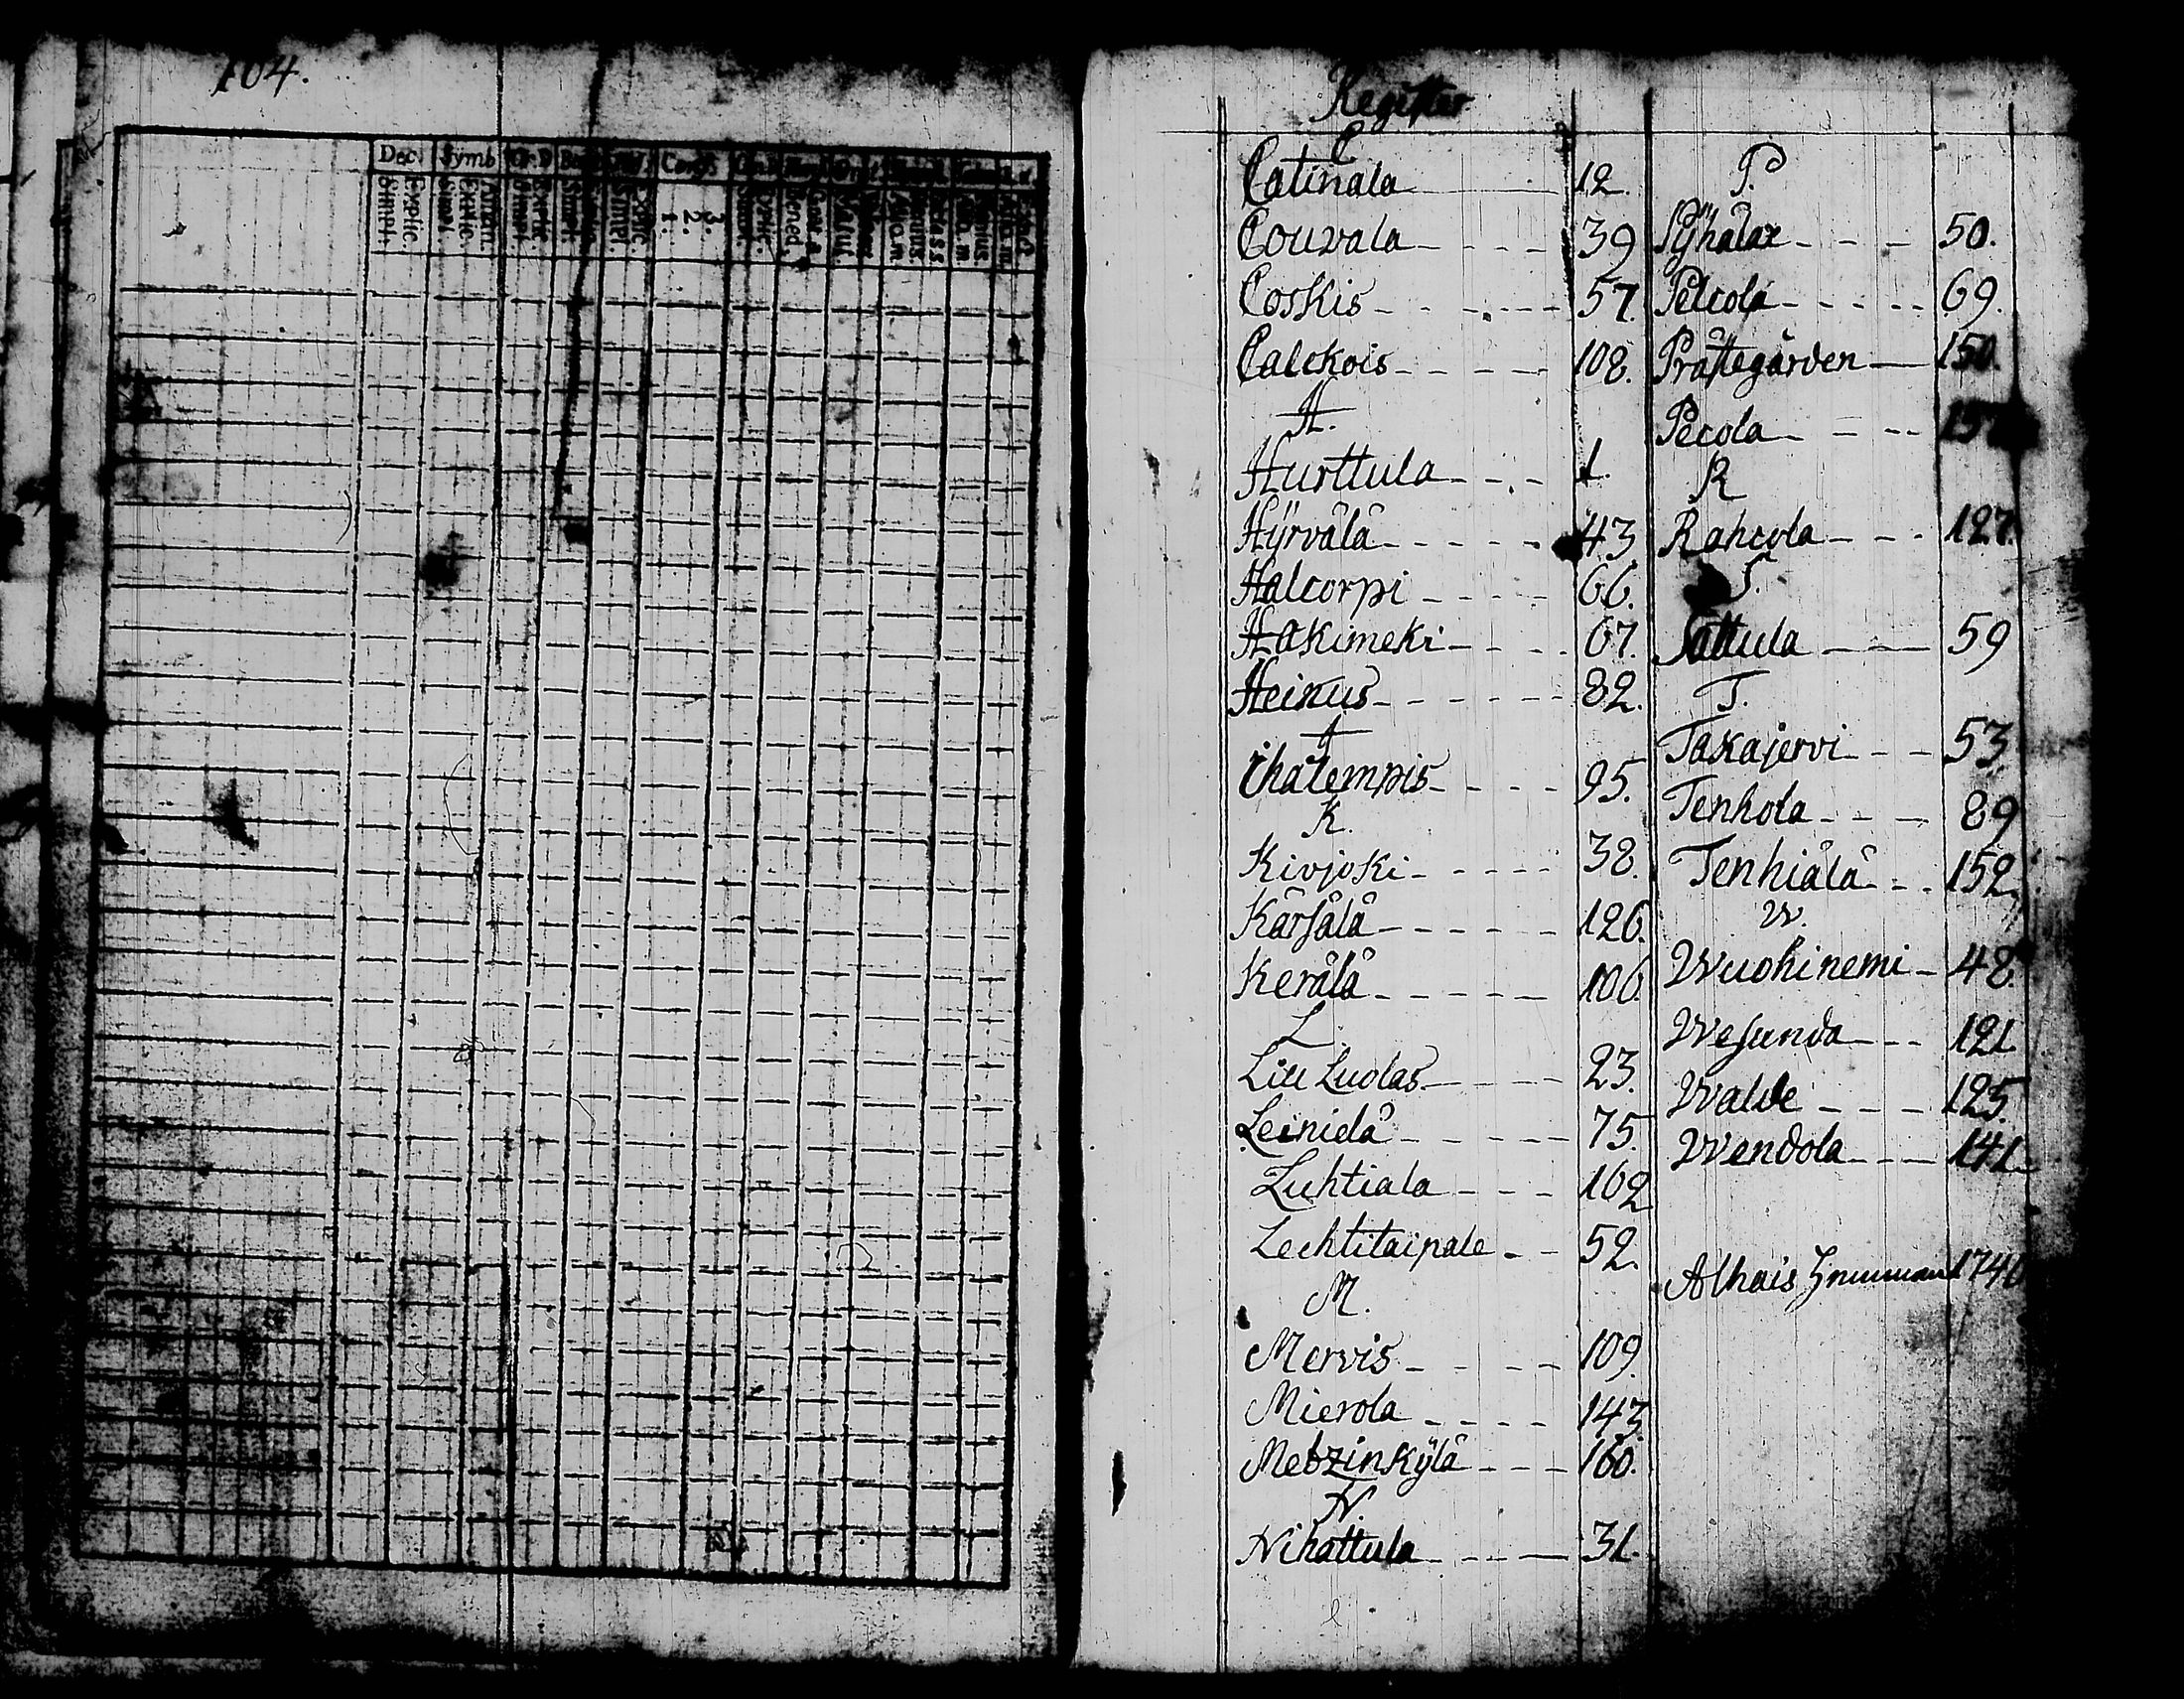 104.
Dec. Symb
Explic.
Simpl.
Explic.
Simpl.
3.
2.
1.
Register
C
Catinala 12.
Couvala 39
Coskis 57.
Calckois 108.
H.
Hurttula 1.
Hÿrvälä 43
Halcorpi 66.
Hakimeki 67.
Heinus 82.
I
Ihalempis 95.
K.
Kivjoki 38.
Kärsälä 126.
Kerälä 106.
L
Liu Luolas 23.
Leinielä 75.
Luhtiala 162
Lechtitaipale 52.
M.
Mervis 109.
Mierola 143.
Metzinkÿlä 160.
N.
Nihattula 31.
P.
Pÿhälax 50.
Pelcola 69.
Prästegården 150.
Pecola
R
Rahcola 127.
S.
Sattula 59
T.
Takajervi 53
Tenhola 89
Tenhiälä 152
W.
Wuohinemi 48.
Wesunda 121
Walde 125
Wendola 141
Alhais